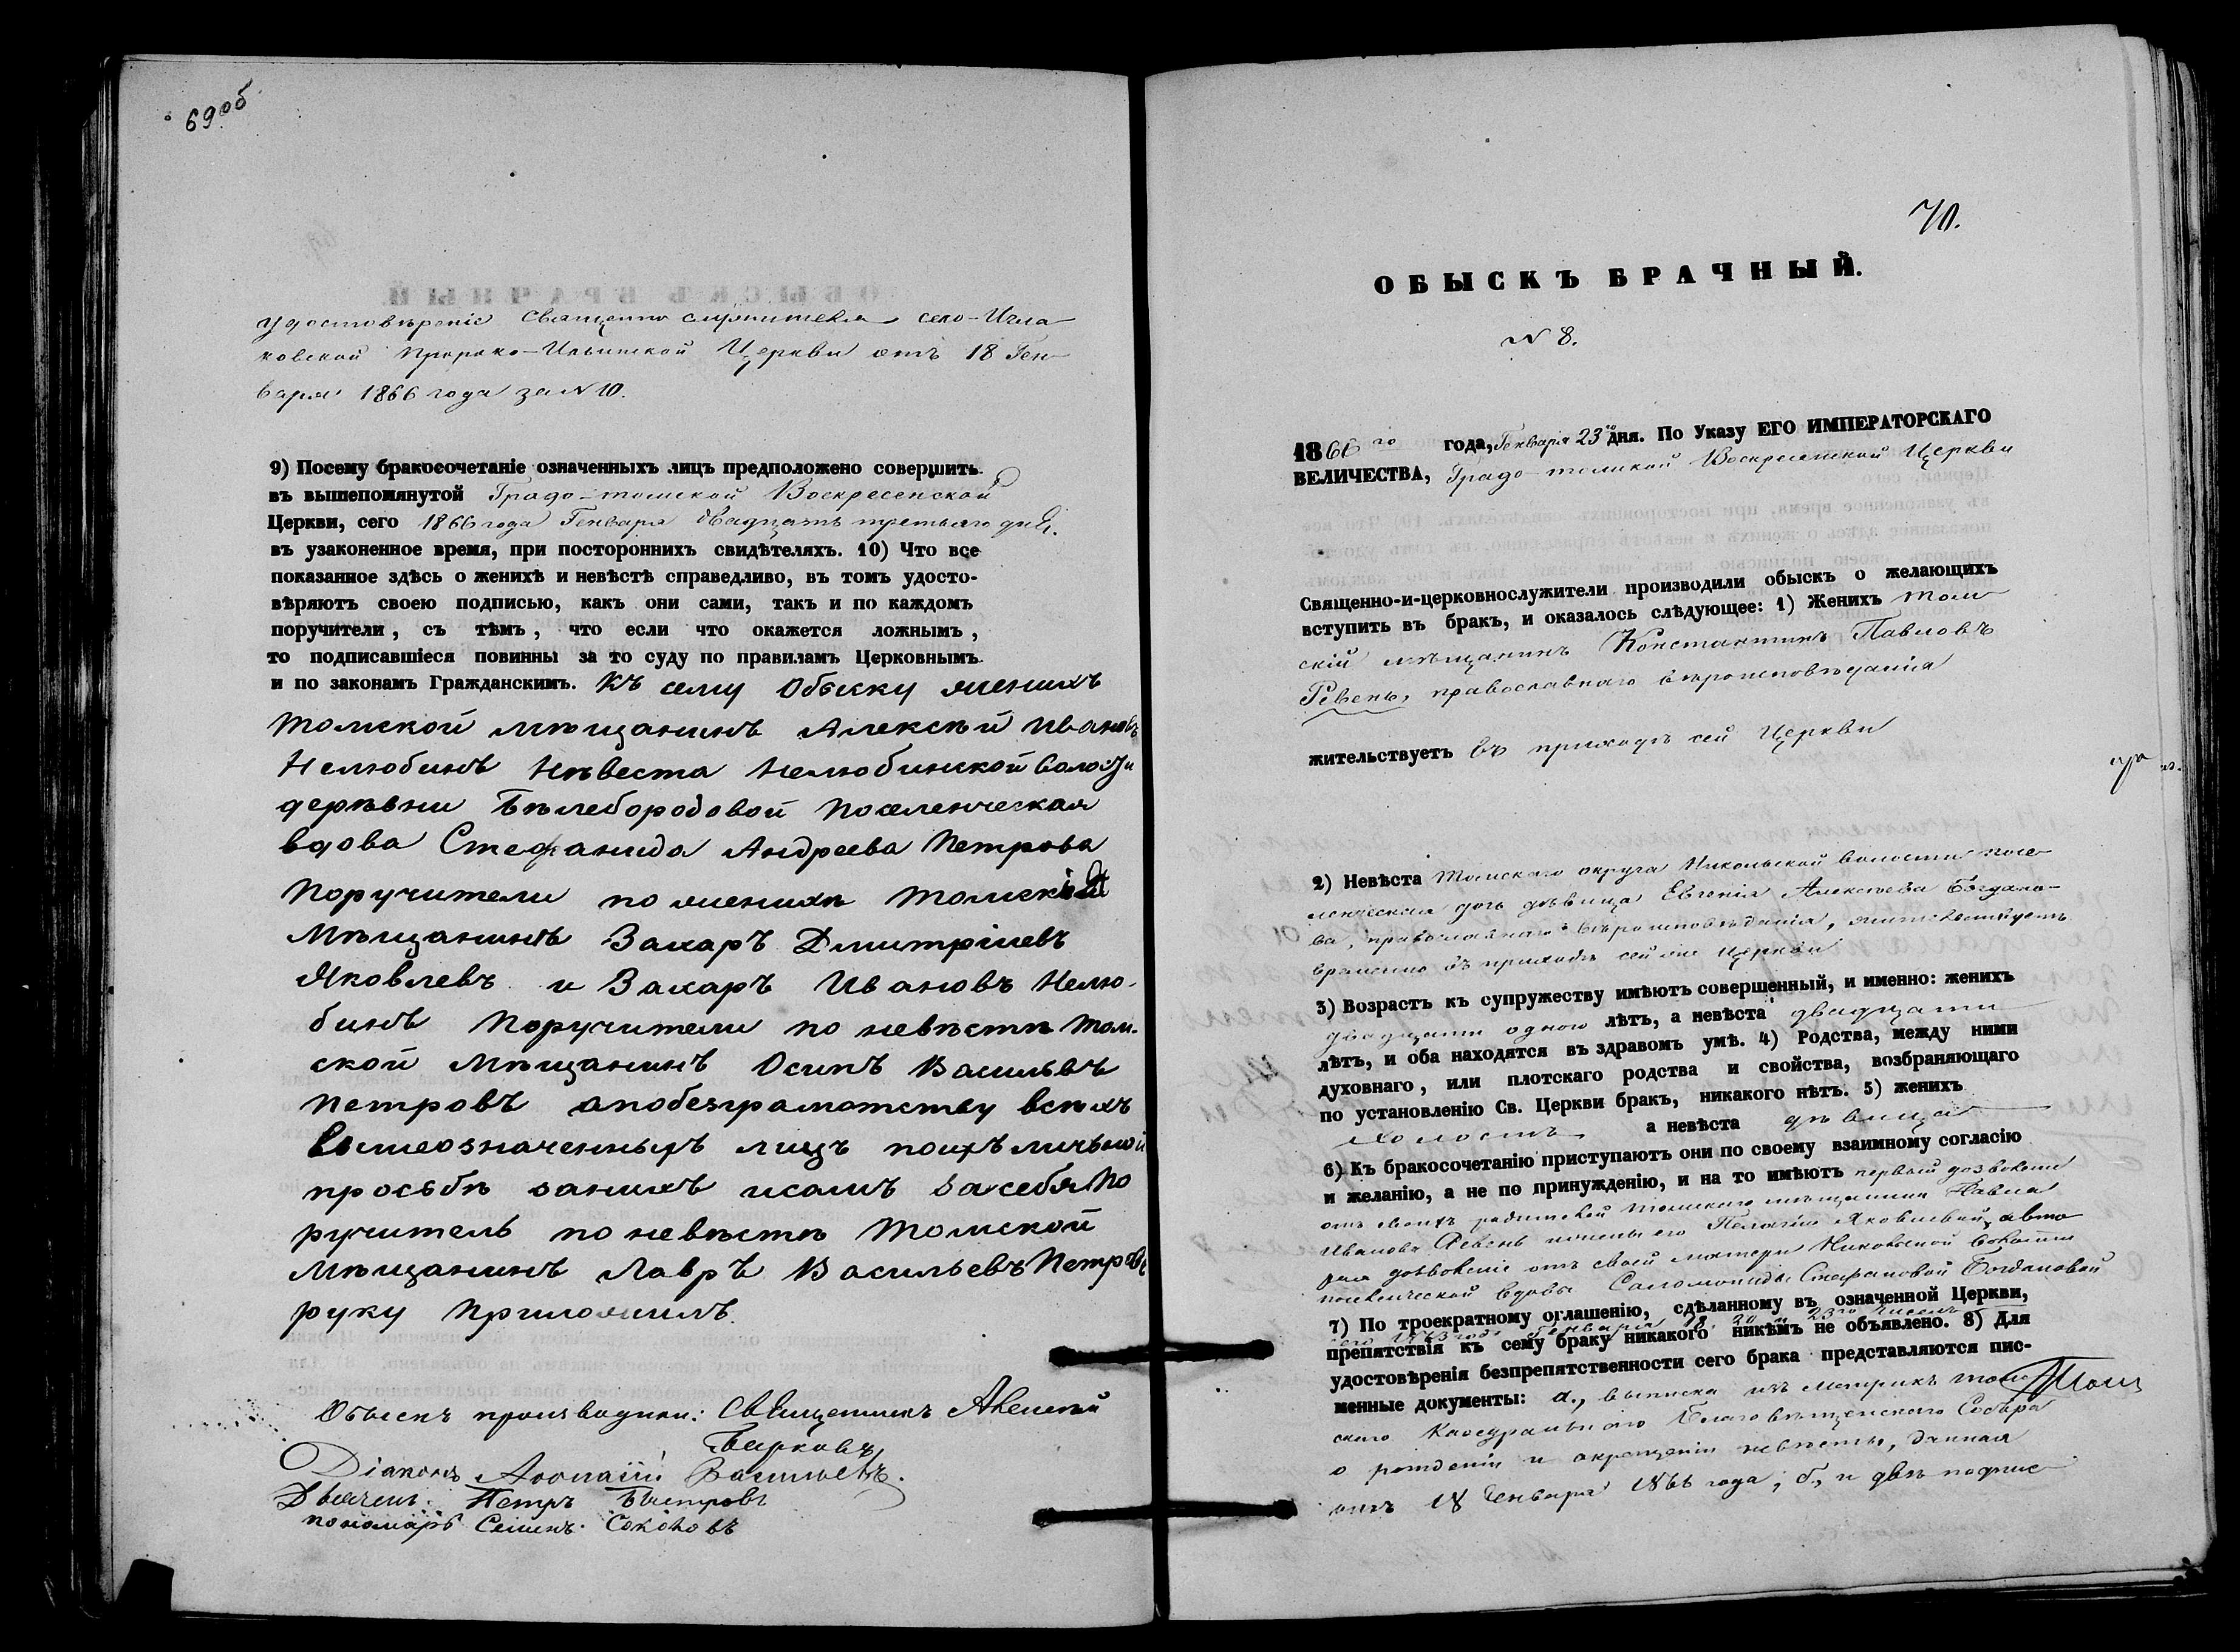 69об
удостовѣреніе Священно служителя село-Игла
ковской Пророко-Ильинской Церкви отъ 18 Ген-
варя 1866 года за N 10.
9) Посему бракосочетаніе означенныхъ лицъ предположено совершить
въ вышепомянутой Градо-томской Воскресенской
Церкви, сего 1866 года Генваря двадцать третьяго дня.
въ узаконенное время, при постороннихъ свидѣтеляхъ. 10) Что все
показанное здѣсь о женихѣ и невѣстѣ справедливо, въ томъ удосто-
вѣряютъ своею подписью, какъ они сами, такъ и по каждомъ
поручители, съ тѣмъ, что если что окажется ложнымъ,
то подписавшіеся повинны за то суду по правиламъ Церковнымъ
и по законамъ Гражданскимъ. Къ сему Обыску женихъ
томской мѣщанинъ Алексѣй Ивановъ
Нелюбинъ Нѣвеста Нелюбинской волости
дерѣвни Бѣлебородовой Поселенческая
вдова Стефанида Андреева Петрова
Поручители по женихѣ томскій
Мѣщанинъ Захаръ Дмитріевъ
Яковлевъ и Захаръ Ивановъ Нелю-
бинъ Поручители по невѣстѣ том-
ской Мѣщанинъ Осипъ Васильвъ
Петровъ апобезграмотству всѣхъ
вышеозначенныхъ лицъ поихъ личьной
просьбѣ занихъ исамъ засебя По
ручитель по невѣстѣ Томской
Мѣщанинъ Лавръ Васильевъ Петровъ
руку Приложилъ.
Обыскъ производили: Священникъ Алексѣй
Діаконъ Васильевъ.
Дьячекъ Петръ Быстровъ
пономарь Семенъ Соколовъ
70.
ОБЫСКЪ БРАЧНЫЙ.
N 8.
1866 го года, Генваря 23 го дня. По Указу ЕГО ИМПЕРАТОРСКАГО
ВЕЛИЧЕСТВА, Градо-томской Воскресенской Церкви
Священно-и-церковнослужители производили обыскъ о желающихъ
вступить въ бракъ, и оказалось слѣдующее: 1) Женихъ Том
скій мѣщанинъ Константинъ Павловъ
Ревень, православнаго вѣроисповѣданія
жительствуетъ въ приходѣ сей Церкви
2) Невѣста Томскаго округа Никольской волости посе
ленческая дочь дѣвица Евгенія Алексѣева Богдано-
ва, православнаго вѣроисповѣданія, жительствуетъ
временно въ приходѣ сей же Церкви
3) Возрастъ къ супружеству имѣютъ совершенный, и именно: женихъ
двадцати одного лѣтъ, а невѣста двадцати
лѣтъ, и оба находятся въ здравомъ умѣ. 4) Родства, между ними
духовнаго, или плотскаго родства и свойства, возбраняющаго
по установленію Св. Церкви бракъ, никакого нѣтъ. 5) женихъ
холостъ а невѣста дѣвица
6) Къ бракосочетанію приступаютъ они по своему взаимному согласію
и желанію, а не по принужденію, и на то имѣютъ первый дозволеніе
отъ своихъ родителей томскаго мѣщанина Павла
Иванова Ревень и жены его Пелагіи Яковлевой, а вто
рая дозволеніе отъ своей матери Никольской волости
поселенческой вдовы Саломониды Стефановой Богдановой
7) По троекратному оглашенію, сдѣланному въ означенной Церкви,
Генваря 18. 20 и 23го чиселъ
препятствія къ сему браку никакого никѣмъ не объявлено. 8) Для
удостовѣренія безпрепятственности сего брака представляются пис-
менные документы: а., выписка изъ метрикъ Том
скаго Каѳедральнаго Благовѣщенскаго Собора
о рожденіи и окрещеніи невѣсты, данная
отъ 18 Генваря 1866 года; б., и двѣ подпис